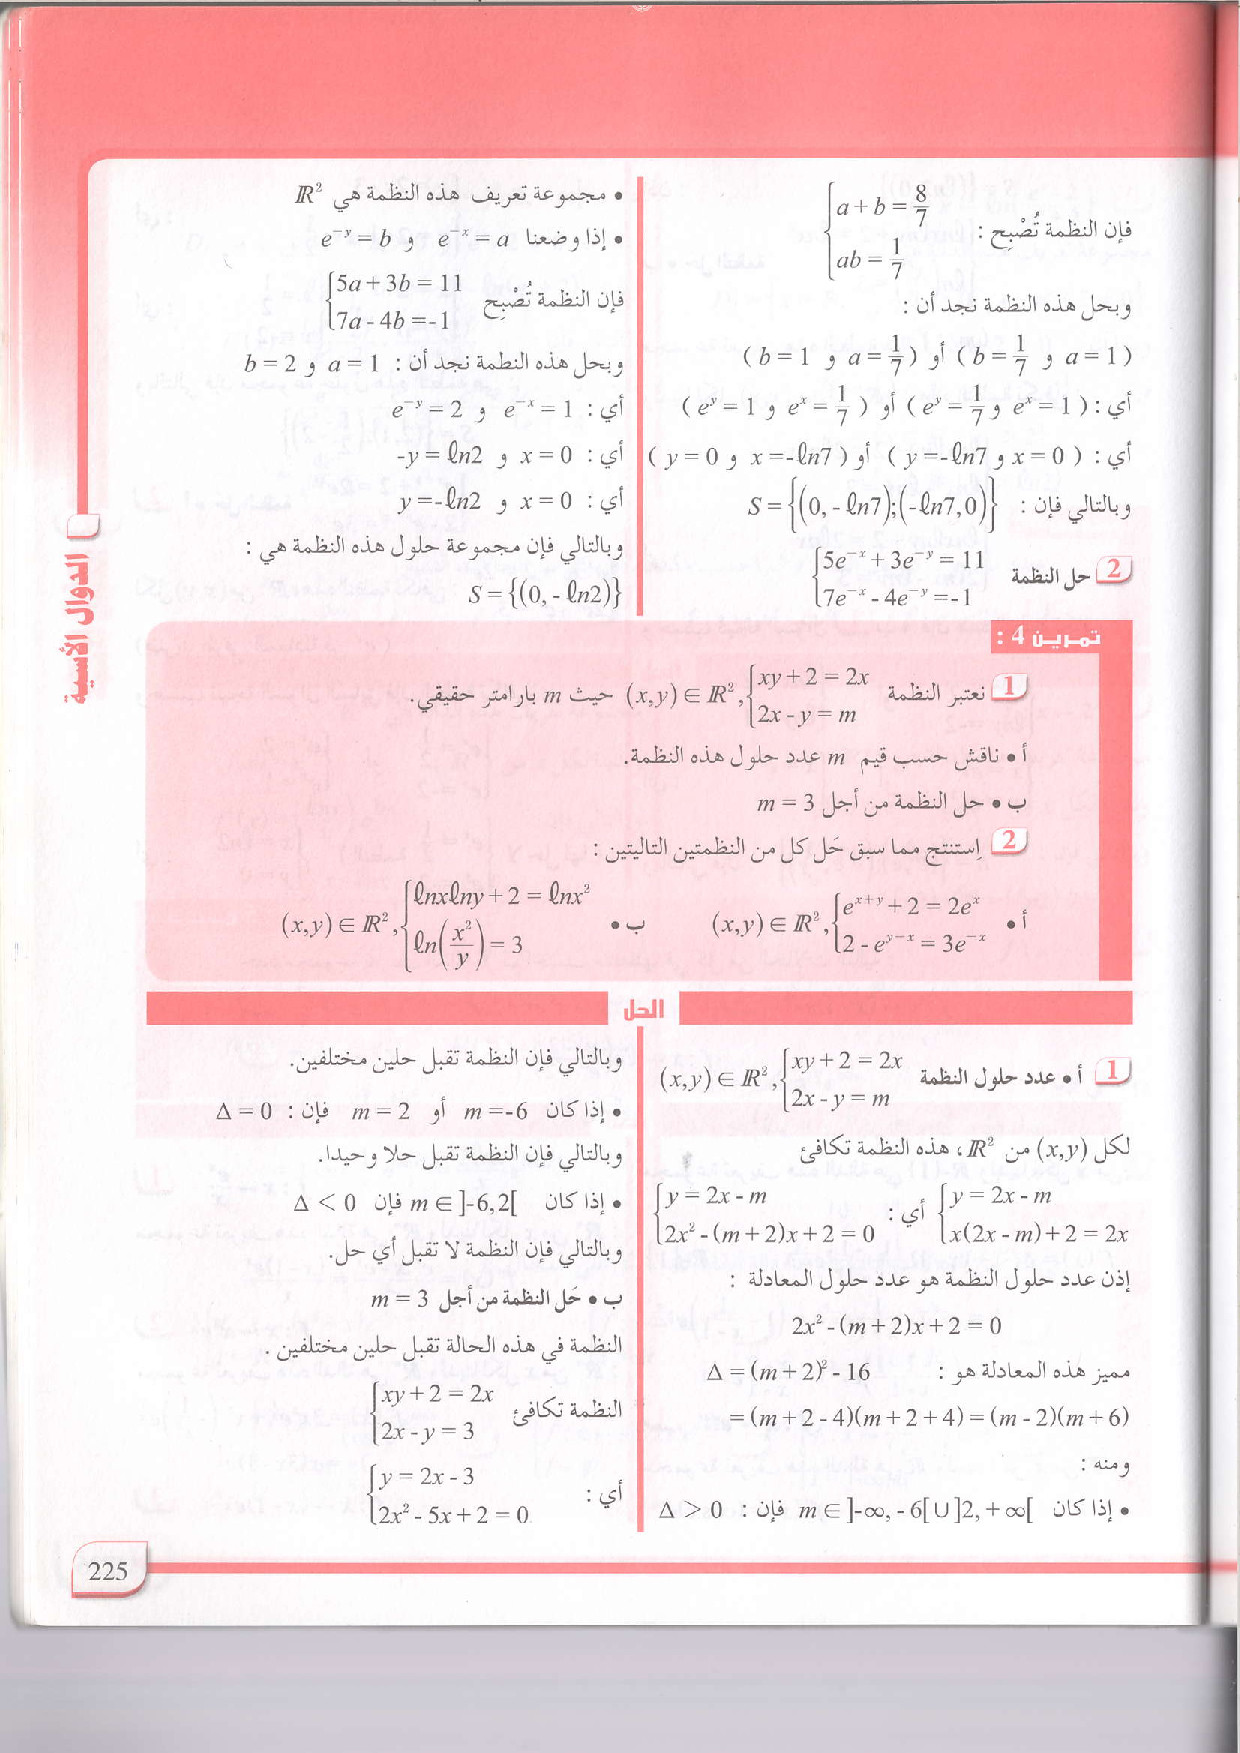 فإن النظمة تُصْبِح : {a + b = 8/7
ab = 1/7
وبحل هذه النظمة نجد أن :
(a = 1 و b = 1/7) أو (a = 1/7 و b = 1)
أي : (eˣ = 1 و eʸ = 1/7) أو (eˣ = 1/7 و eʸ = 1)
أي : (x = 0 و y = -ℓn7) أو (x = -ℓn7 و y = 0)
وبالتالي فإن : S = {(0, - ℓn7);(-ℓn7,0)}
2 حل النظمة {5e⁻ˣ + 3e⁻ʸ = 11
7e⁻ˣ - 4e⁻ʸ = -1
• مجموعة تعريف هذه النظمة هي ℝ²
• إذا وضعنا e⁻ˣ = a و e⁻ʸ = b
فإن النظمة تُصْبِح {5a + 3b = 11
7a - 4b = -1
وبحل هذه النظمة نجد أن : a = 1 و b = 2
أي : e⁻ˣ = 1 و e⁻ʸ = 2
أي : x = 0 و -y = ℓn2
أي : x = 0 و y = -ℓn2
وبالتالي فإن مجموعة حلول هذه النظمة هي :
S = {(0, - ℓn2)}
الدوال الأسية
تمرين 4 :
1 نعتبر النظمة (x,y) ∈ ℝ², {xy + 2 = 2x
2x - y = m حيث m بارامتر حقيقي.
أ • ناقش حسب قيم m عدد حلول هذه النظمة.
ب • حل النظمة من أجل m = 3
2 إستنتج مما سبق حَل كل من النظمتين التاليتين :
أ • (x,y) ∈ ℝ², {eˣ⁺ʸ + 2 = 2eˣ
2 - eʸ⁻ˣ = 3e⁻ˣ
ب • (x,y) ∈ ℝ², {ℓnxℓny + 2 = ℓnx²
ℓn(x²/y) = 3
الحل
1 أ • عدد حلول النظمة (x,y) ∈ ℝ², {xy + 2 = 2x
2x - y = m
لكل (x,y) من ℝ²، هذه النظمة تكافئ
{y = 2x - m
x(2x - m) + 2 = 2x أي : {y = 2x - m
2x² - (m + 2)x + 2 = 0
إذن عدد حلول النظمة هو عدد حلول المعادلة :
2x² - (m + 2)x + 2 = 0
مميز هذه المعادلة هو : Δ = (m + 2)² - 16
= (m + 2 - 4)(m + 2 + 4) = (m - 2)(m + 6)
ومنه :
• إذا كان m ∈ ]-∞, - 6[ ∪ ]2, + ∞[ فإن : Δ > 0
وبالتالي فإن النظمة تقبل حلين مختلفين.
• إذا كان m = -6 أو m = 2 فإن : Δ = 0
وبالتالي فإن النظمة تقبل حلا وحيدا.
• إذا كان m ∈ ]-6,2[ فإن Δ < 0
وبالتالي فإن النظمة لا تقبل أي حل.
ب • حَل النظمة من أجل m = 3
النظمة في هذه الحالة تقبل حلين مختلفين .
النظمة تكافئ {xy + 2 = 2x
2x - y = 3
أي : {y = 2x - 3
2x² - 5x + 2 = 0
225